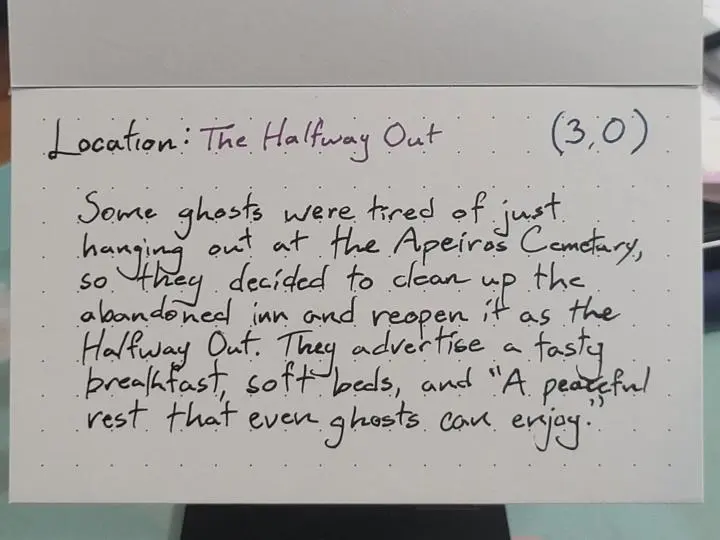 Location: The Halfway Out (3,0)
Some ghosts were tired of just
hanging out at the Apeiros Cemetary,
so they decided to clean up the
abandoned inn and reopen it as the
Halfway Out. They advertise a tasty
breakfast, soft beds, and "A peaceful
rest that even ghosts can enjoy."